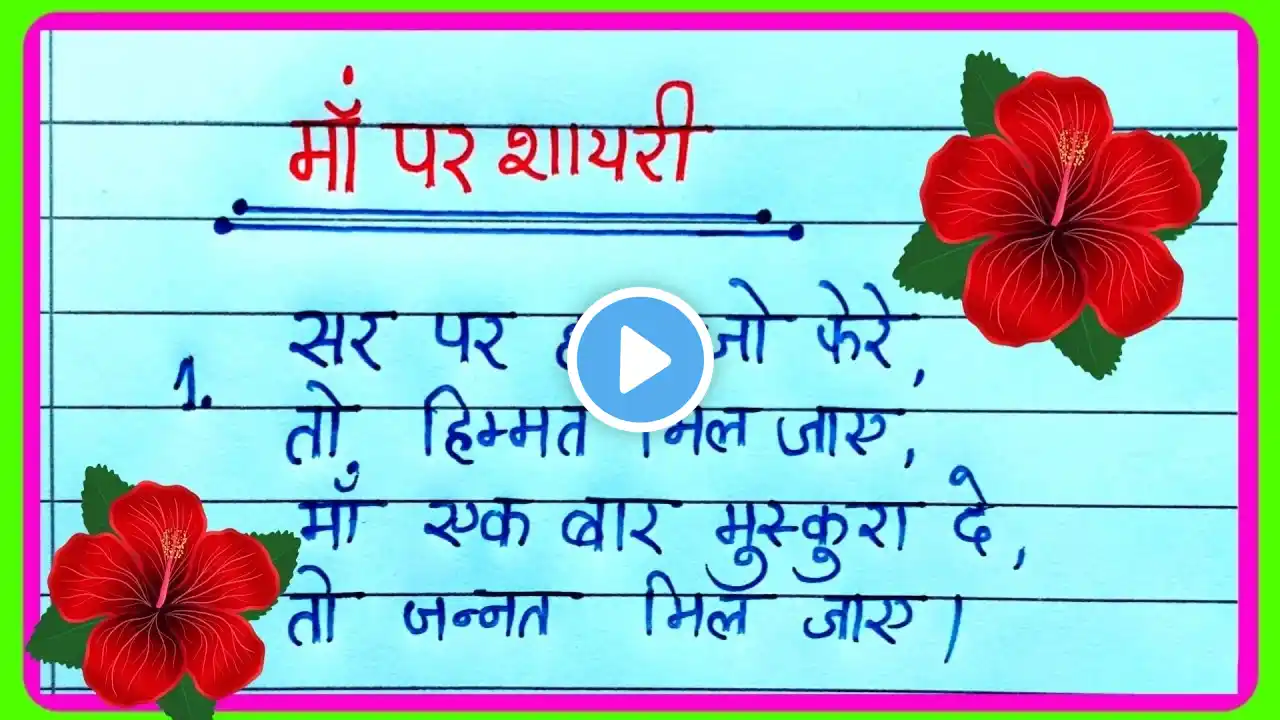 माँ पर शायरी
1. सर पर जो फेरे,
तो हिम्मत मिल जाए,
माँ एक बार मुस्कुरा दे,
तो जन्नत मिल जाए।